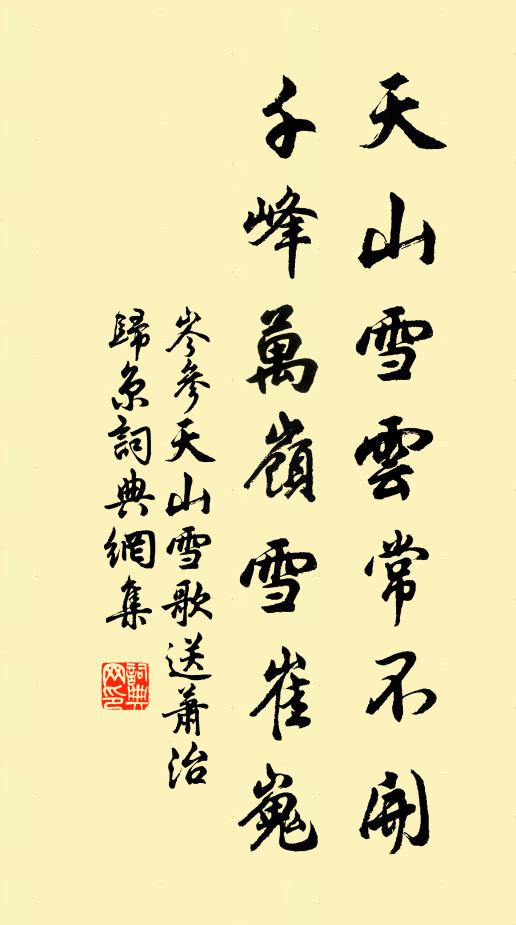 天山雪雲常不開
千峰萬嶺雪崔嵬
岑參天山雪歌送蕭治
歸京詞典網集
詞典網印